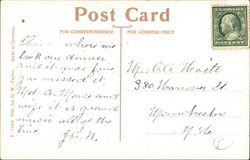 Post Card
FOR CORRESPONDENCE
FOR ADDRESS ONLY
This is where we
took our dinner
and it was fine
you missed it
Met A. Morse and
wife it is grand
music all of the
time J. N.
Mrs C. A. Hoitt
380 Hanover St
Manchester
N. H.